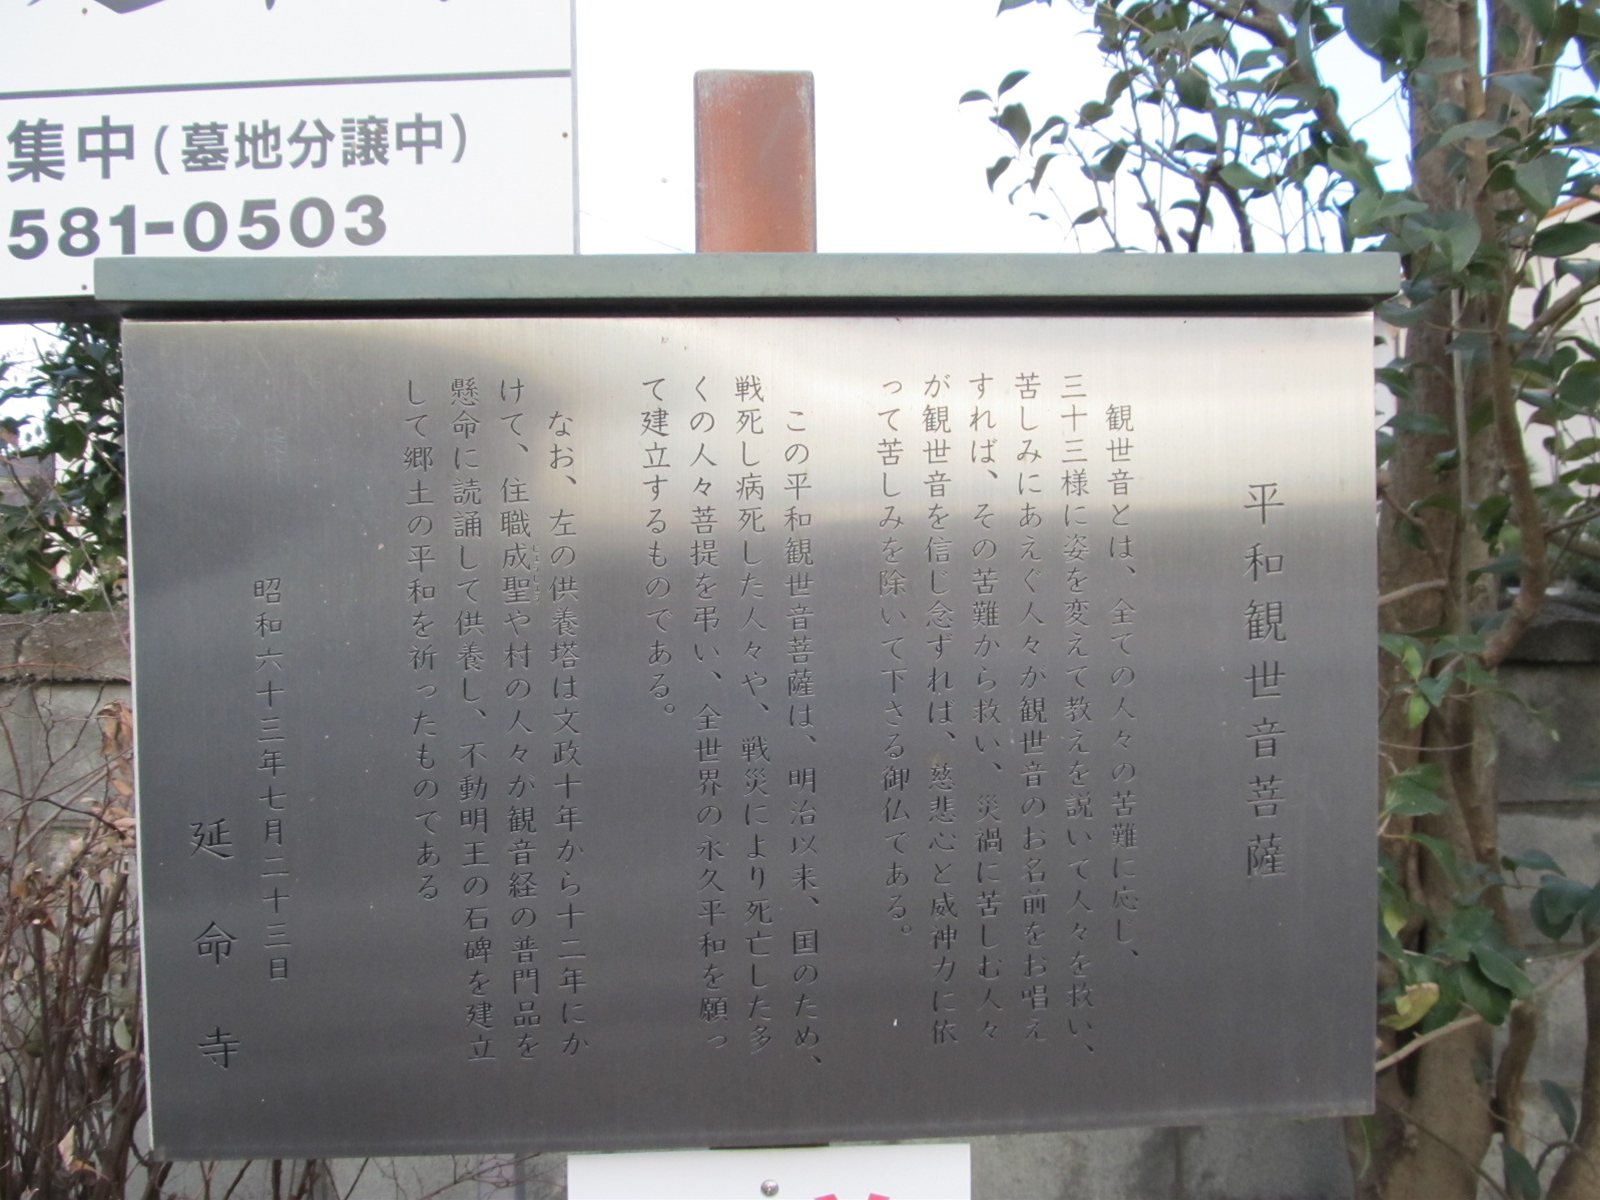 集中(墓地分譲中)
581-0503
平和観世音菩薩
観世音とは、全ての人々の苦難に応じ、
三十三様に姿を変えて教えを説いて人々を救い、
苦しみにあえぐ人々が観世音のお名前をお唱え
すれば、その苦難から救い、災禍に苦しむ人々
が観世音を信じ念ずれば、慈悲心と威神力に依
って苦しみを除いて下さる御仏である。
この平和観世音菩薩は、明治以来、国のため、
戦死し病死した人々や、戦災により死亡した多
くの人々菩提を弔い、全世界の永久平和を願っ
て建立するものである。
なお、左の供養塔は文政十年から十二年にか
けて、住職成聖や村の人々が観音経の普門品を
懸命に読誦して供養し、不動明王の石碑を建立
して郷土の平和を祈ったものである
昭和六十三年七月二十三日
延命寺